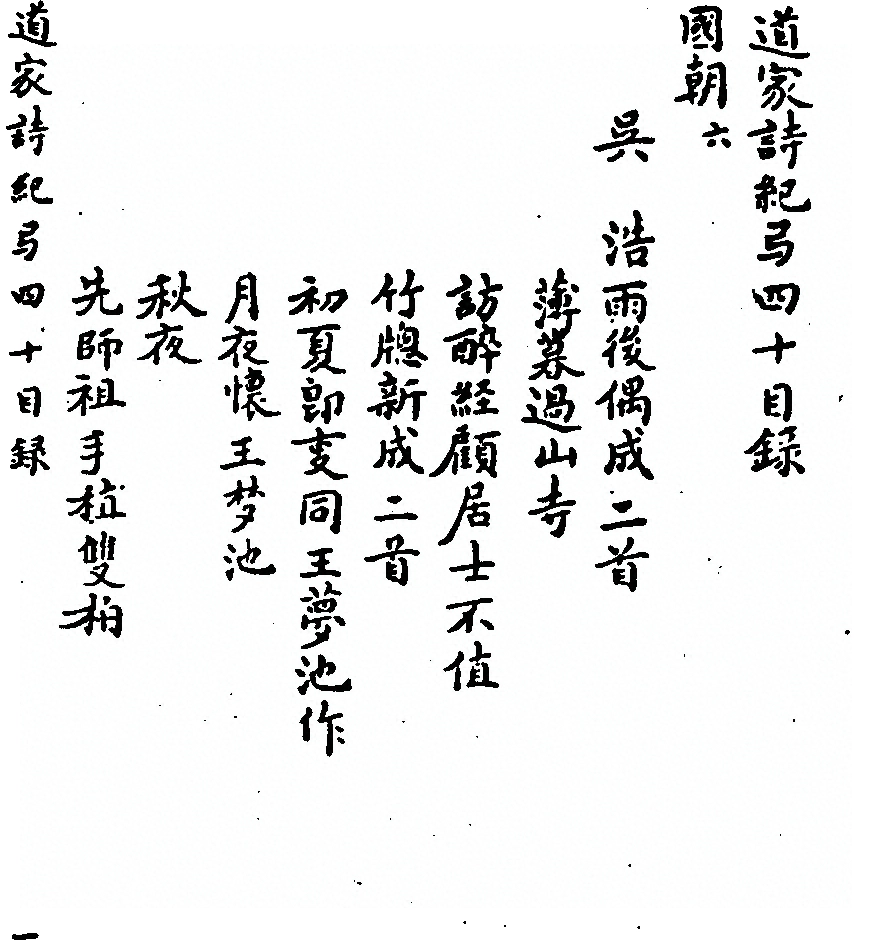 道家詩紀弓四十目録
國朝六
吳 浩雨後偶成二首
薄暮過山寺
訪醉経顧居士不值
竹牕新成二首
初夏即事同王夢池作
月夜懷王梦池
秋夜
先師祖手植雙柏
道家詩紀弓四十目録
一